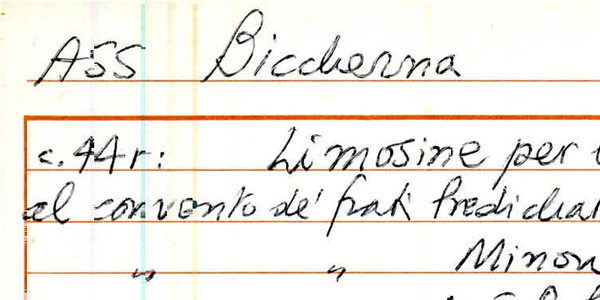 ASS Biccherna
c. 44r: Limosine per
al convento de' frati Predicha
" " Minori